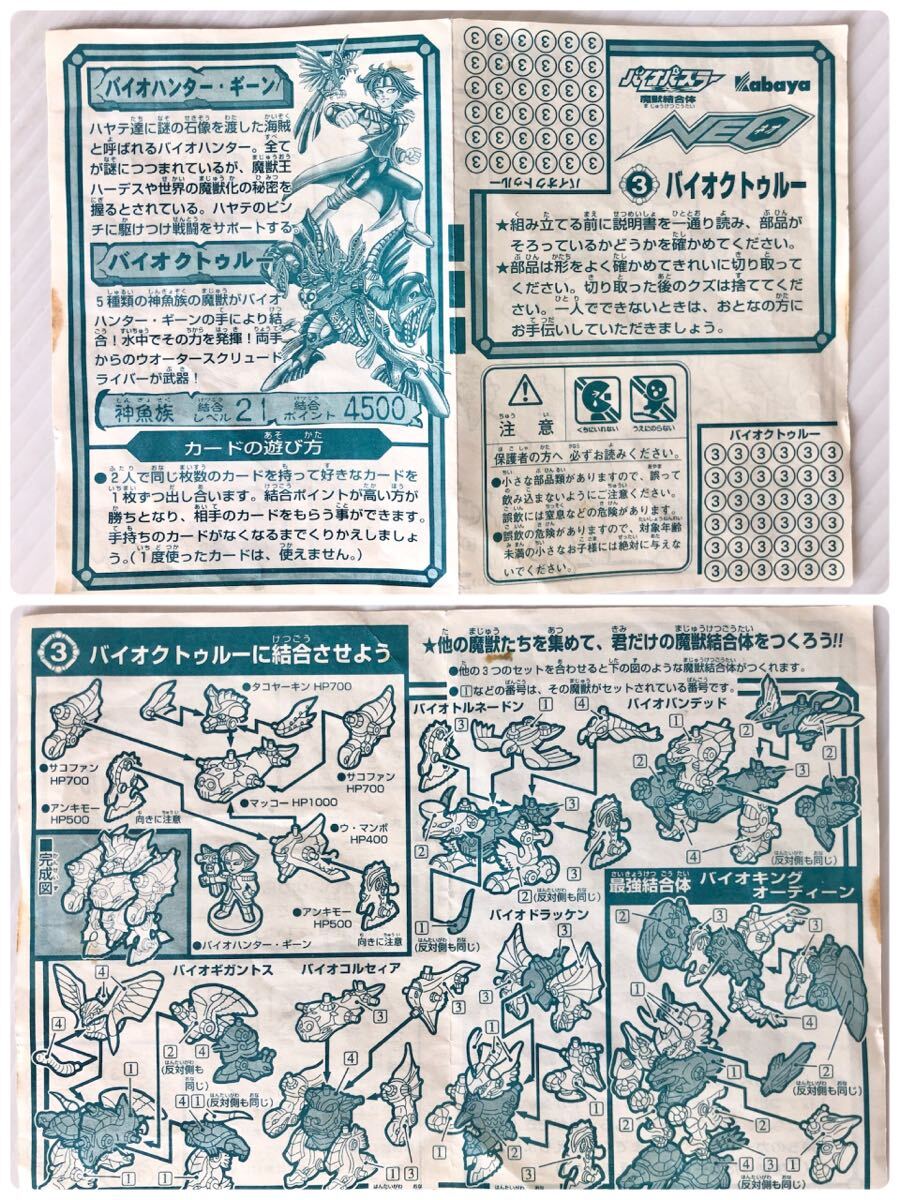 バイオハンター・ギーン
ハヤテ達に謎の石像を渡した海賊
と呼ばれるバイオハンター。全て
が謎につつまれているが、魔獣王
ハーデスや世界の魔獣化の秘密を
握るとされている。ハヤテのピン
チに駆けつけ戦闘をサポートする。
バイオクトゥルー
5種類の神魚族の魔獣がバイオ
ハンター・ギーンの手により結
合！水中でその力を発揮！両手
からのウオータースクリュード
ライバーが武器！
神魚族 結合レベル 21 結合ポイント 4500
カードの遊び方
●2人で同じ枚数のカードを持って好きなカードを
1枚ずつ出し合います。結合ポイントが高い方が
勝ちとなり、相手のカードをもらう事ができます。
手持ちのカードがなくなるまでくりかえしましょ
う。（1度使ったカードは、使えません。）
バイオクトゥルー
バイオバスラー
魔獣結合体
まじゅうけつごうたい
Kabaya
NEO
ネオ
③ バイオクトゥルー
★組み立てる前に説明書を一通り読み、部品が
そろっているかどうかを確かめてください。
★部品は形をよく確かめてきれいに切り取って
ください。切り取った後のクズは捨ててくだ
さい。一人でできないときは、おとなの方に
お手伝いしていただきましょう。
注意
くちにいれない
うえにのらない
保護者の方へ 必ずお読みください。
●小さな部品類がありますので、誤って
飲み込まないようにご注意ください。
誤飲には窒息などの危険があります。
●誤飲の危険がありますので、対象年齢
未満の小さなお子様には絶対に与えな
いでください。
バイオクトゥルー
③③③③③③
③③③③③③
③③③③③③
③③③③③③
③③③③③③
③③③③③③
③ バイオクトゥルーに結合させよう
●タコヤーキン HP700
●サコファン
HP700
●サコファン
HP700
●アンキモー
HP500
向きに注意
●マッコー HP1000
●ウ・マンボ
HP400
●アンキモー
HP500
向きに注意
■完成図
●バイオハンター・ギーン
★他の魔獣たちを集めて、君だけの魔獣結合体をつくろう!!
●他の3つのセットを合わせると下の図のような魔獣結合体がつくれます。
●①などの番号は、その魔獣がセットされている番号です。
バイオトルネードン
バイオバンデッド
(反対側も同じ)
(反対側も同じ)
(反対側も同じ)
最強結合体 バイオキング
オーディーン
バイオドラッケン
バイオギガントス
バイオコルセィア
(反対側も
同じ)
(反対側も同じ)
(反対側も同じ)
(反対側も同じ)
(反対側も同じ)